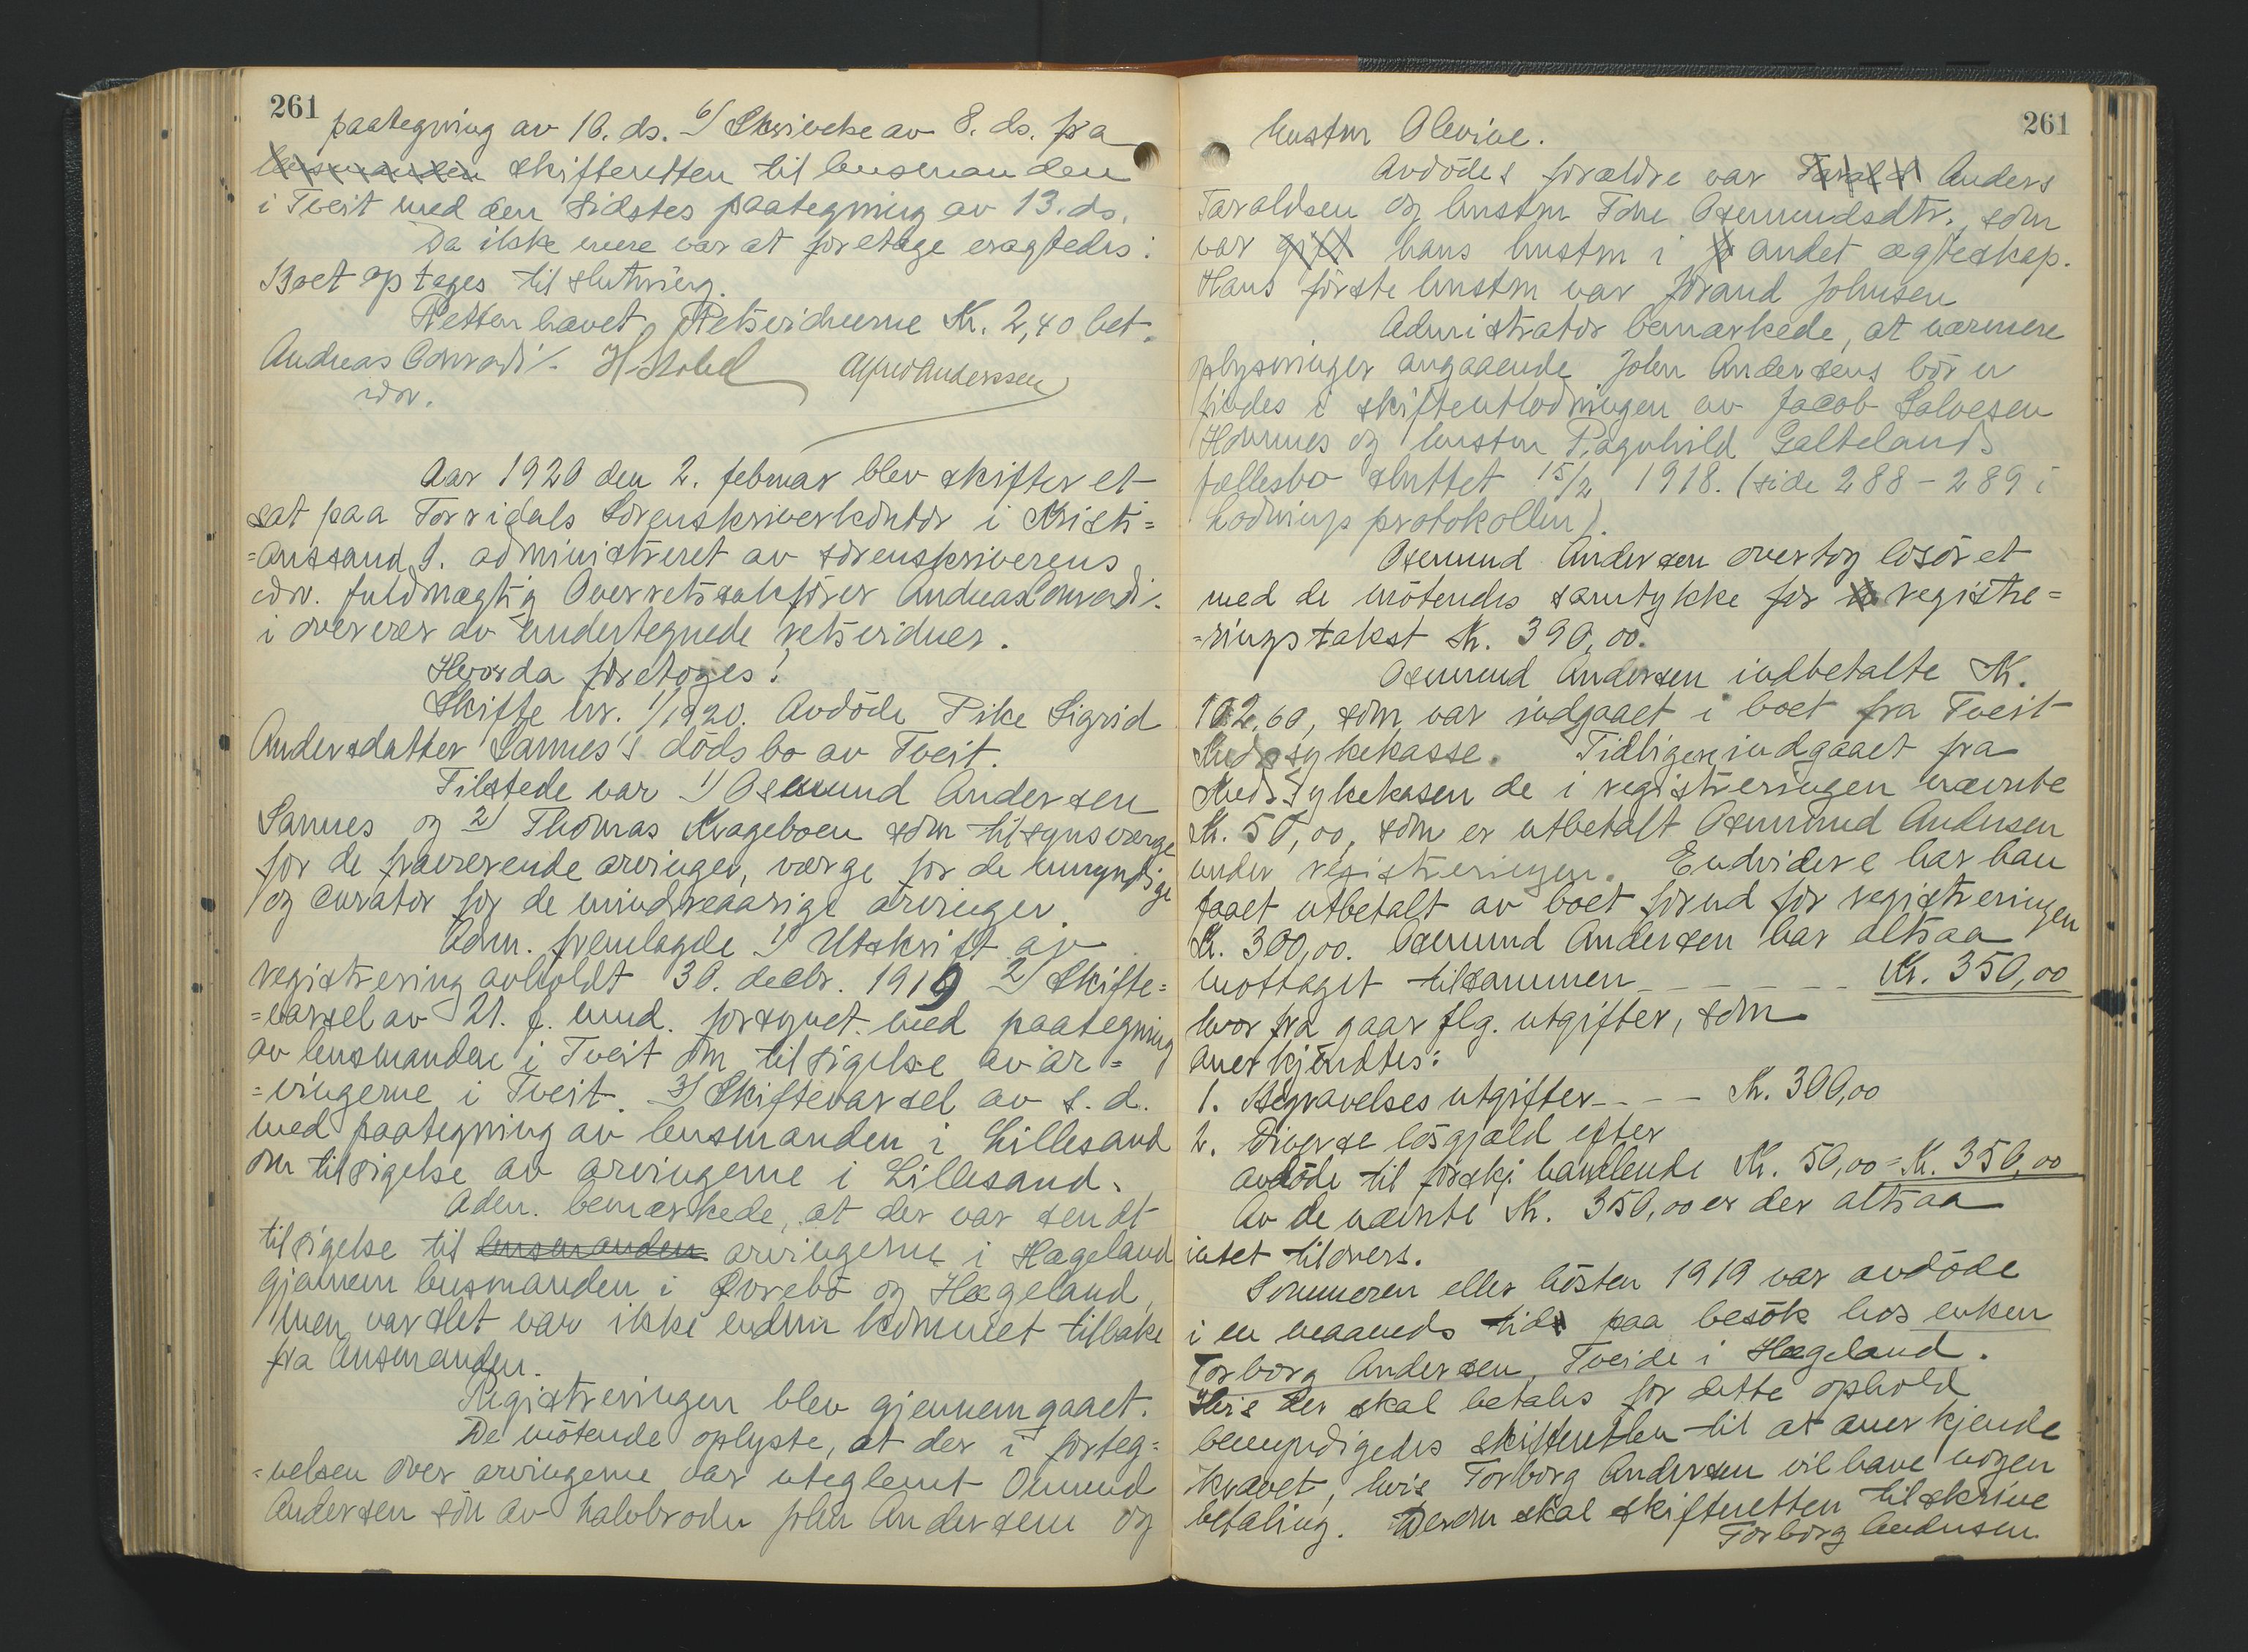 261
paategning av 10. ds. 6) Skrivelse av 8. ds. fra
lensmanden skifteretten til lensmanden
i Tveit med den sidstes paategning av 13. ds.
Da ikke mere var at foretage eragtedes:
Boet optages til slutning.
Retten hævet. Retsvidnerne Kr. 2,40 bet.
Andreas Conradi. H. Stabel Alfred Anderssen
edsv.
Aar 1920 den 2. februar blev skifteret
sat paa Torridals Sorenskriverkontor i Kristi=
=anssand S. administreret av sorenskriverens
edsv. fuldmægtig Overretssakfører Andreas Conradi.
i overvær av undertegnede retsvidner.
Hvorda foretoges:
Skifte nr. 1/1920. Avdöde Pike Sigrid
Andersdatter Sannes's dödsbo av Tveit.
Tilstede var 1) Osmund Andersen
Sannes og 2) Thomas Krageboen som tilsynsværge
for de fraværende arvinger, værge for de umyndige
og curator for de mindreaarige arvinger.
Adm. fremlagde 1) Utskrift av
registrering avholdt 30. decbr. 1919 2) Skifte=
=varsel av 21. f. mnd. forsynet med paategning
av lensmanden i Tveit om tilsigelse av ar=
=vingerne i Tveit. 3) Skiftevarsel av s. d.
med paategning av lensmanden i Lillesand
om tilsigelse av arvingerne i Lillesand.
Adm. bemerkede, at der var sendt
tilsigelse til lensmanden arvingerne i Hægeland
gjennem lensmanden i Øvrebö og Hægeland,
men varslet var ikke endnu kommet tilbake
fra lensmanden.
Registreringen blev gjennemgaaet.
De mötende oplyste, at der i forteg=
=nelsen over arvingerne var uteglemt Omund
Andersen sön av halvbroder John Andersen og
261
hustru Olevine.
Avdödes forældre var Tarald Anders
Taraldsen og hustru Tone Osmundsdtr., som
var gift hans hustru i andet ægteskap.
Hans förste hustru var Jorand Johnsen
Administrator bemærkede, at nærmere
oplysninger angaaende John Andersens bör er
findes i skifteutlodningen av Jacob Salvesen
Hommes og hustru Ragnhild Galtelands
fællesbo sluttet 15/2 1918. (side 288-289 i
Lodningsprotokollen).
Osmund Andersen overtog lösöret
med de mötendes samtykke for registre=
=ringstakst Kr. 390,00.
Osmund Andersen indbetalte Kr.
102,60, som var indgaaet i boet fra Tveit
Kredssykekasse. Tidligere indgaaet fra
Kredssykekassen de i registreringen nævnte
Kr. 50,00, som er utbetalt Osmund Andersen
under registreringen. Endvidere har han
faaet utbetalt av boet forud for registreringen
Kr. 300,00. Osmund Andersen har altsaa
mottaget tilsammen - - - - - Kr. 350,00
hvor fra gaar flg. utgifter, som
anerkjendtes:
1. Begravelses utgifter - - - - Kr. 300,00
2. Diverse lösgjæld efter
avdöde til forskj. handlende Kr. 50,00 = Kr. 350,00
Av de nævnte Kr. 350,00 er der altsaa
intet tilovers.
Sommeren eller hösten 1919 var avdöde
i en maaneds tid paa besök hos enken
Torborg Andersen Tveide i Hægeland.
Hvis der skal betales for dette ophold
bemyndigedes skifteretten til at anerkjende
kravet, hvis Torborg Andersen vil have nogen
betaling. Derom skal skifteretten tilskrive
Torborg Andersen